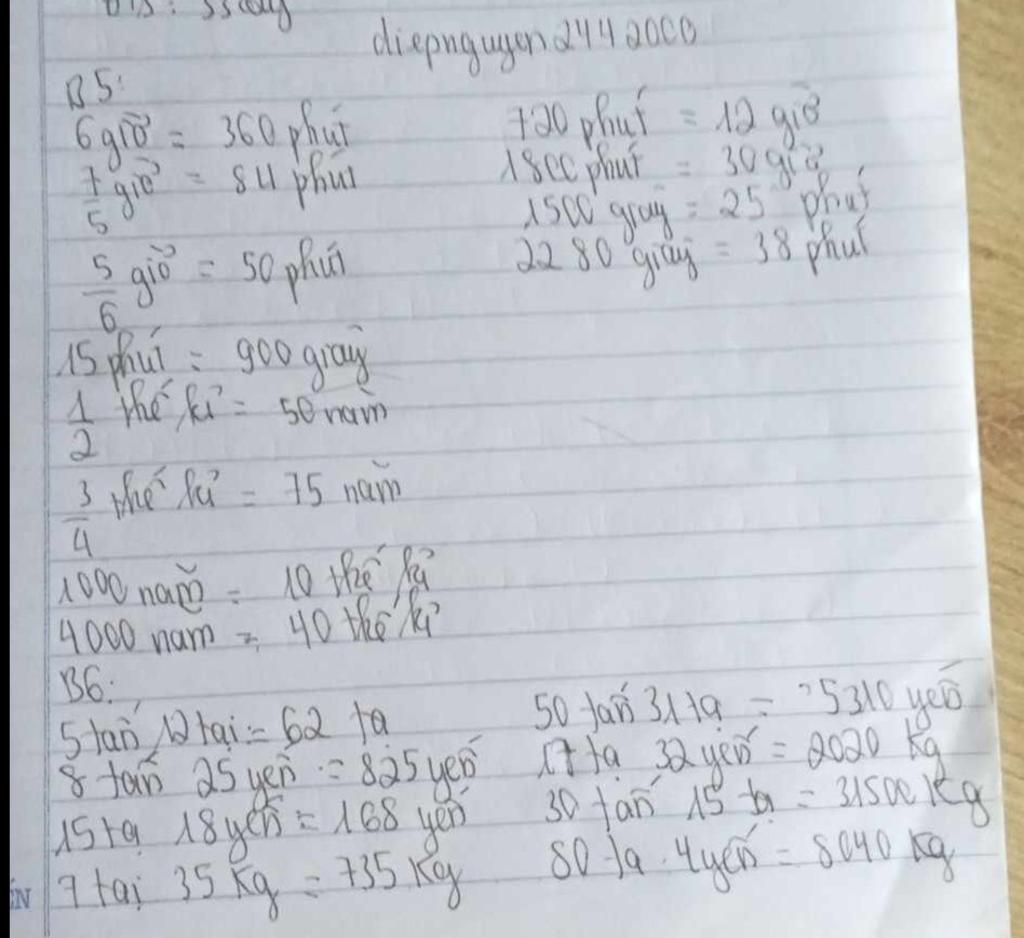 diepnguyen2442000
B5:
6 giờ = 360 phút 720 phút = 12 giờ
7/5 giờ = 84 phút 1800 phút = 30 giờ
1500 giây = 25 phút
5/6 giờ = 50 phút 2280 giây = 38 phút
15 phút = 900 giây
1/2 thế kỉ = 50 năm
3/4 thế kỉ = 75 năm
1000 năm = 10 thế kỉ
4000 năm = 40 thế kỉ
B6:
5 tấn 12 tạ = 62 tạ 50 tấn 31 tạ = 5310 yến
8 tấn 25 yến = 825 yến 17 tạ 32 yến = 2020 Kg
15 tạ 18 yến = 168 yến 30 tấn 15 tạ = 31500 Kg
7 tại 35 Kg = 735 Kg 80 tạ 4 yến = 8040 Kg